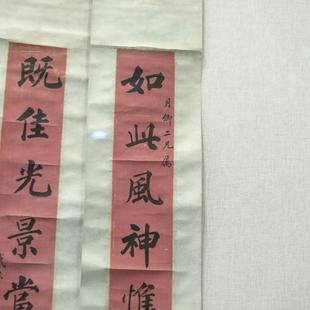 如此風神惟
月卿二兄屬
既佳光景當